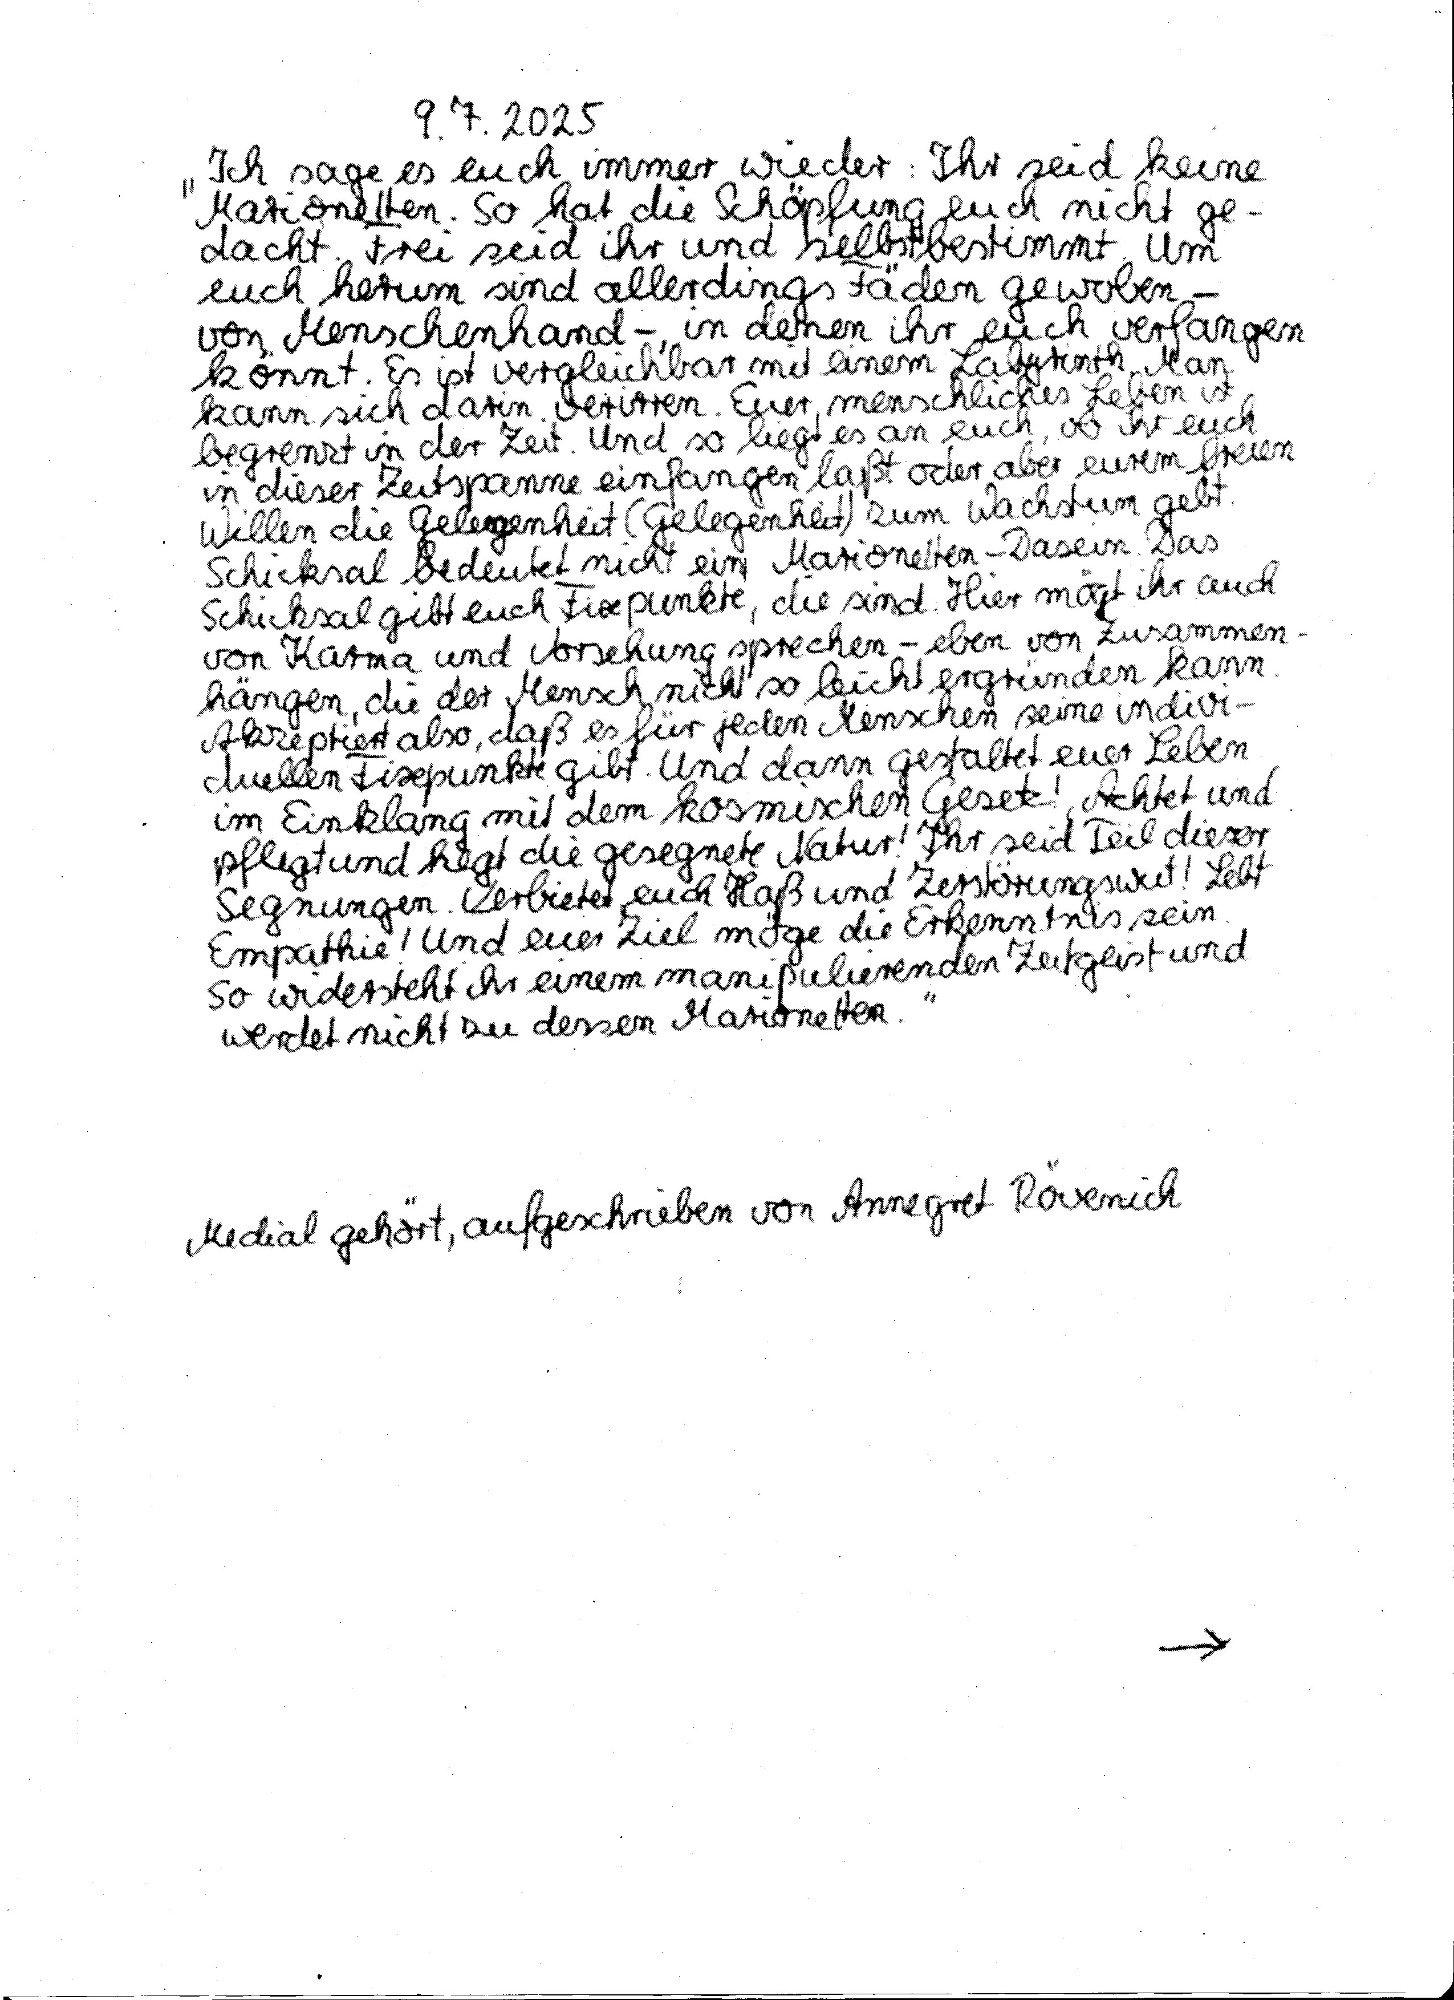 9.7.2025
"Ich sage es euch immer wieder: Ihr seid keine
Marionetten. So hat die Schöpfung euch nicht ge-
dacht. Frei seid ihr und selbstbestimmt. Um
euch herum sind allerdings Fäden gewoben –
von Menschenhand –, in denen ihr euch verfangen
könnt. Es ist vergleichbar mit einem Labyrinth. Man
kann sich darin verirren. Euer menschliches Leben ist
begrenzt in der Zeit. Und so liegt es an euch, ob ihr euch
in dieser Zeitspanne einfangen laßt oder aber eurem freien
Willen die Gelegenheit (Gelegenheit) zum Wachstum gebt.
Schicksal bedeutet nicht ein Marionetten-Dasein. Das
Schicksal gibt euch Fixpunkte, die sind. Hier mögt ihr auch
von Karma und Vorsehung sprechen – eben von Zusammen-
hängen, die der Mensch nicht so leicht ergründen kann.
Akzeptiert also, daß es für jeden Menschen seine indivi-
duellen Fixpunkte gibt. Und dann gestaltet euer Leben
im Einklang mit dem kosmischen Gesetz! Achtet und
pflegt und hegt die gesegnete Natur! Ihr seid Teil dieser
Segnungen. Verbietet euch Haß und Zerstörungswut! Lebt
Empathie! Und euer Ziel möge die Erkenntnis sein.
So widersteht ihr einem manipulierenden Zeitgeist und
werdet nicht zu dessen Marionetten."
Medial gehört, aufgeschrieben von Annegret Rövenich
→